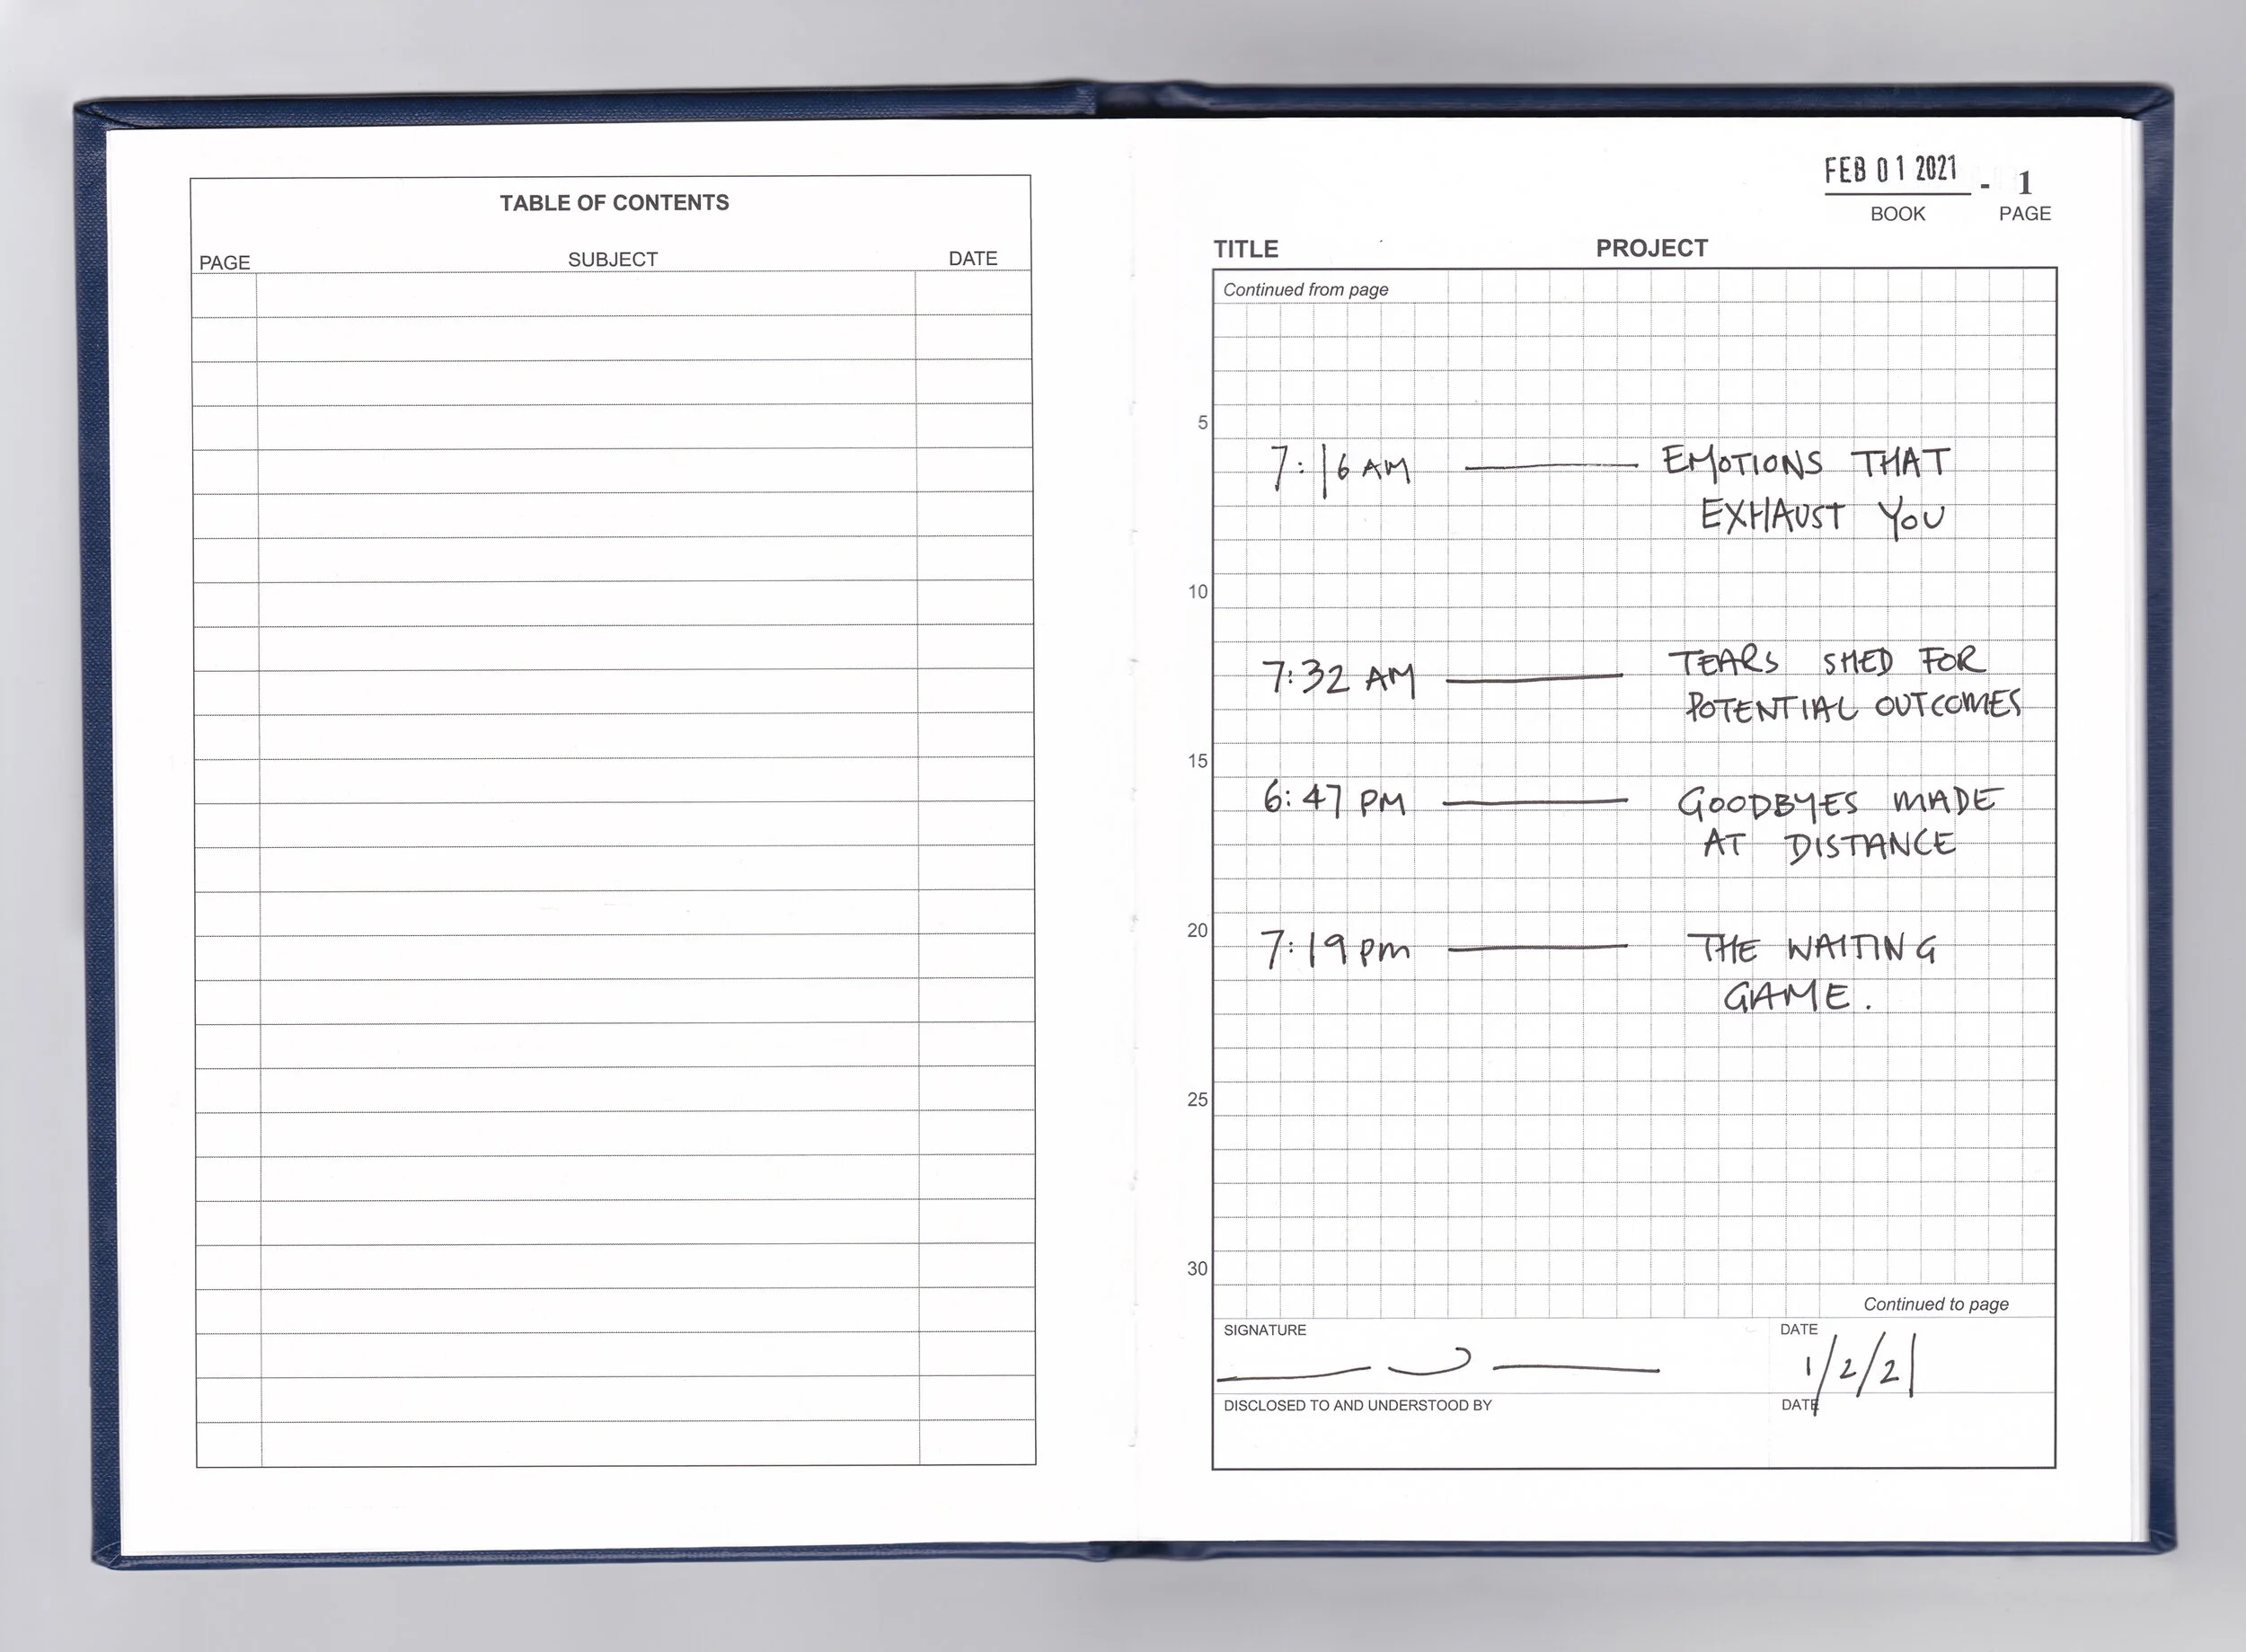 TABLE OF CONTENTS
PAGE SUBJECT DATE
FEB 01 2021 - 1
BOOK PAGE
TITLE PROJECT
Continued from page
5
7:16 AM — EMOTIONS THAT
EXHAUST YOU
10
7:32 AM — TEARS SHED FOR
POTENTIAL OUTCOMES
15
6:47 PM — GOODBYES MADE
AT DISTANCE
20
7:19 pm — THE WAITING
GAME.
25
30
Continued to page
SIGNATURE DATE
1/2/21
DISCLOSED TO AND UNDERSTOOD BY DATE